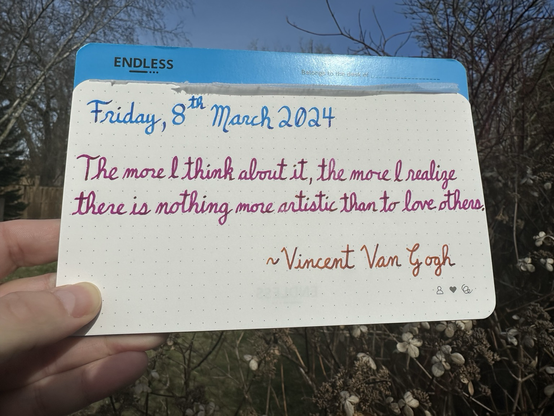 ENDLESS
Friday, 8th March 2024
The more I think about it, the more I realize
there is nothing more artistic than to love others.
~Vincent Van Gogh